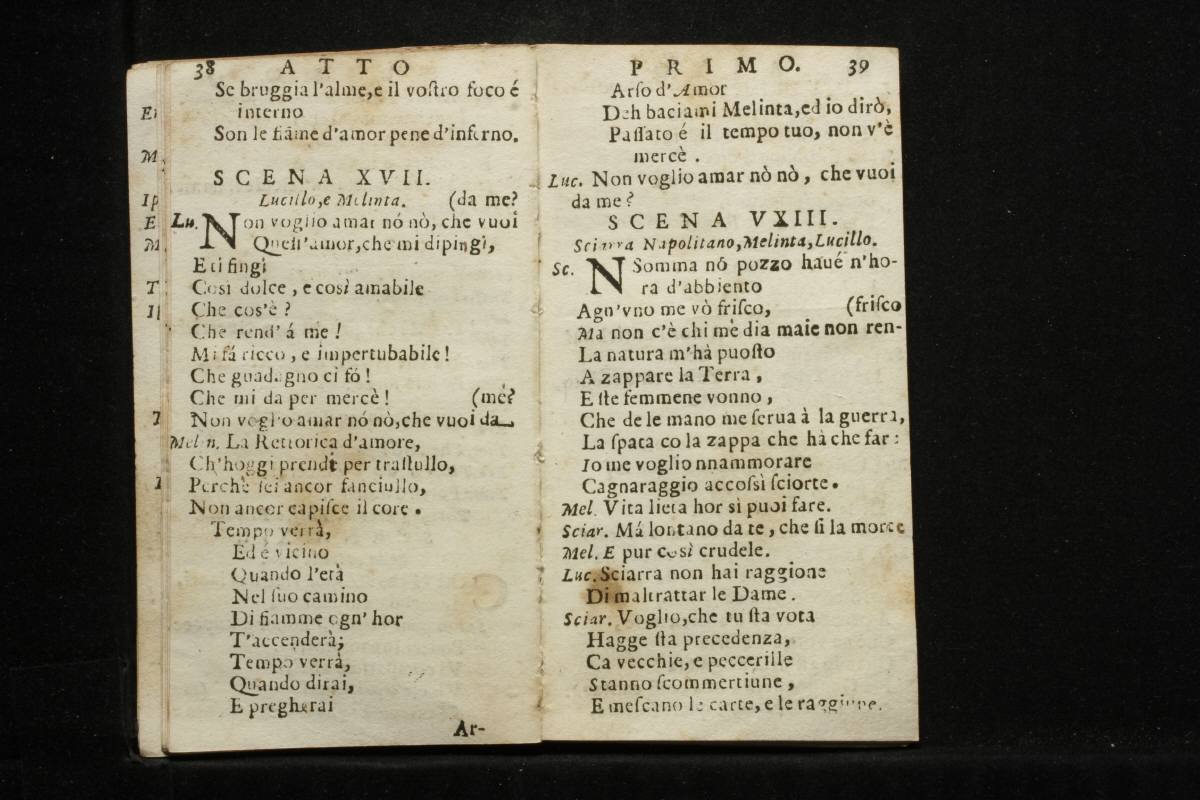 38 ATTO
Se bruggia l'alme, e il vostro foco é
interno
Son le fiãme d'amor pene d'inferno.
SCENA XVII.
Lucillo, e Melinta. (da me?
Lu. Non voglio amar nó nò, che vuoi
Quest'amor, che mi dipingi,
E ti fingi
Così dolce, e così amabile
Che cos'è?
Che rend' á me!
Mi fá ricco, e impertubabile!
Che guadagno ci fó!
Che mi da per mercè! (me?
Non voglio amar nó nò, che vuoi da
Melin. La Rettorica d'amore,
Ch'hoggi prendi per trastullo,
Perchè sei ancor fanciullo,
Non ancor capisce il core.
Tempo verrà,
Ed é vicino
Quando l'età
Nel suo camino
Di fiamme ogn' hor
T'accenderà;
Tempo verrà,
Quando dirai,
E pregherai
Ar-
PRIMO. 39
Arso d'Amor
Deh baciami Melinta, ed io dirò,
Passato é il tempo tuo, non v'è
mercè.
Luc. Non voglio amar nò nò, che vuoi
da me?
SCENA VXIII.
Sciarra Napolitano, Melinta, Lucillo.
Sc. NSomma nó pozzo haué n'ho-
ra d'abbiento
Agn'vno me vò frisco, (frisco
Ma non c'è chi me dia maie non ren-
La natura m'hà puosto
A zappare la Terra,
E ste femmene vonno,
Che de le mano me serua à la guerra,
La spata co la zappa che hà che far:
Io me voglio nnammorare
Cagnaraggio accossì sciorte.
Mel. Vita lieta hor sì puoi fare.
Sciar. Má lontano da te, che si la morte
Mel. E pur così crudele.
Luc. Sciarra non hai raggione
Di maltrattar le Dame.
Sciar. Voglio, che tu sta vota
Hagge sta precedenza,
Ca vecchie, e peccerille
Stanno scommertiune,
E mescano le carte, e le raggiune.